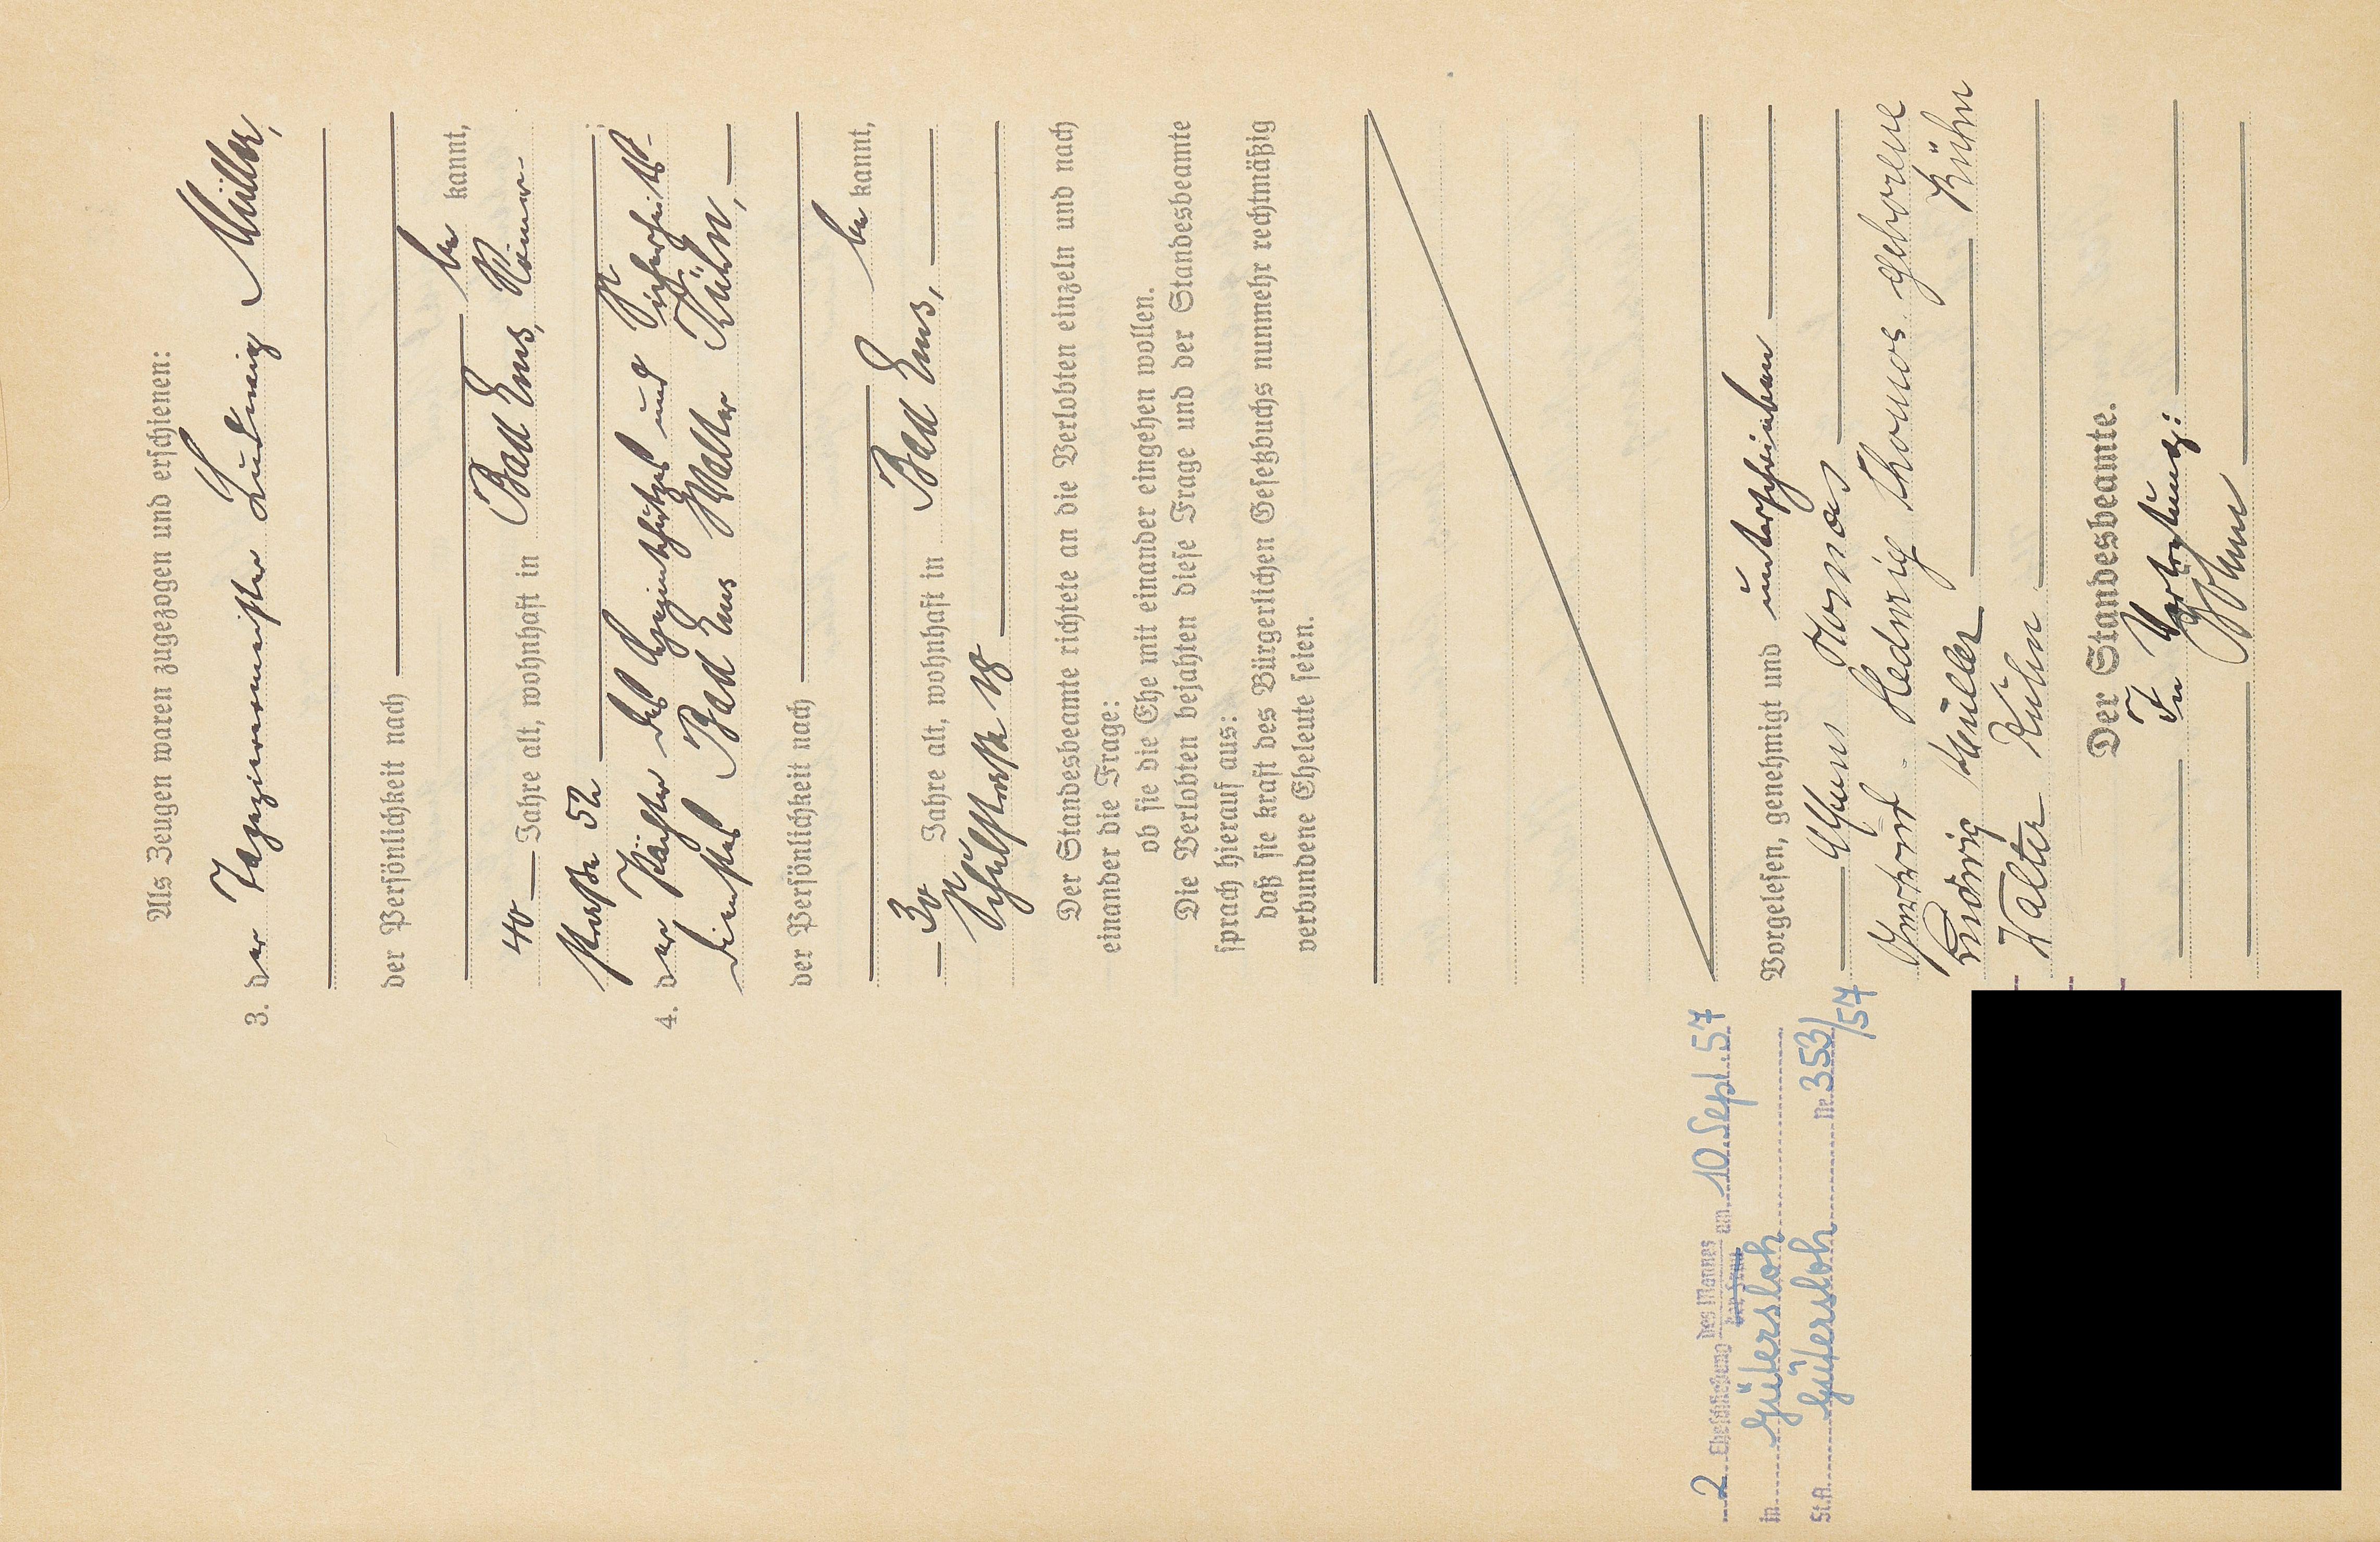 Als Zeugen waren zugezogen und erschienen:
3. der Tapezierermeister Ludwig Müller,
der Persönlichkeit nach
be kannt,
40 Jahre alt, wohnhaft in Bad Ems, Römer-
straße 52
4. der Wächter des und Sicherheits-
dienstes Bad Ems Walter Kühn,
der Persönlichkeit nach
be kannt,
30 Jahre alt, wohnhaft in Bad Ems,
Schulstraße 18
Der Standesbeamte richtete an die Verlobten einzeln und nach
einander die Frage:
ob sie die Ehe mit einander eingehen wollen.
Die Verlobten bejahten diese Frage und der Standesbeamte
sprach hierauf aus:
daß sie kraft des Bürgerlichen Gesetzbuchs nunmehr rechtmäßig
verbundene Eheleute seien.
Vorgelesen, genehmigt und unterschrieben
Thomas
Hedwig Thomas geborene
Kühn
Ludwig Müller
Walter Kühn
Der Standesbeamte.
In Vertretung:
2 Eheschließung des Mannes der Frau am 10. Sept. 57
in Gütersloh
St.A. Gütersloh Nr. 353/57